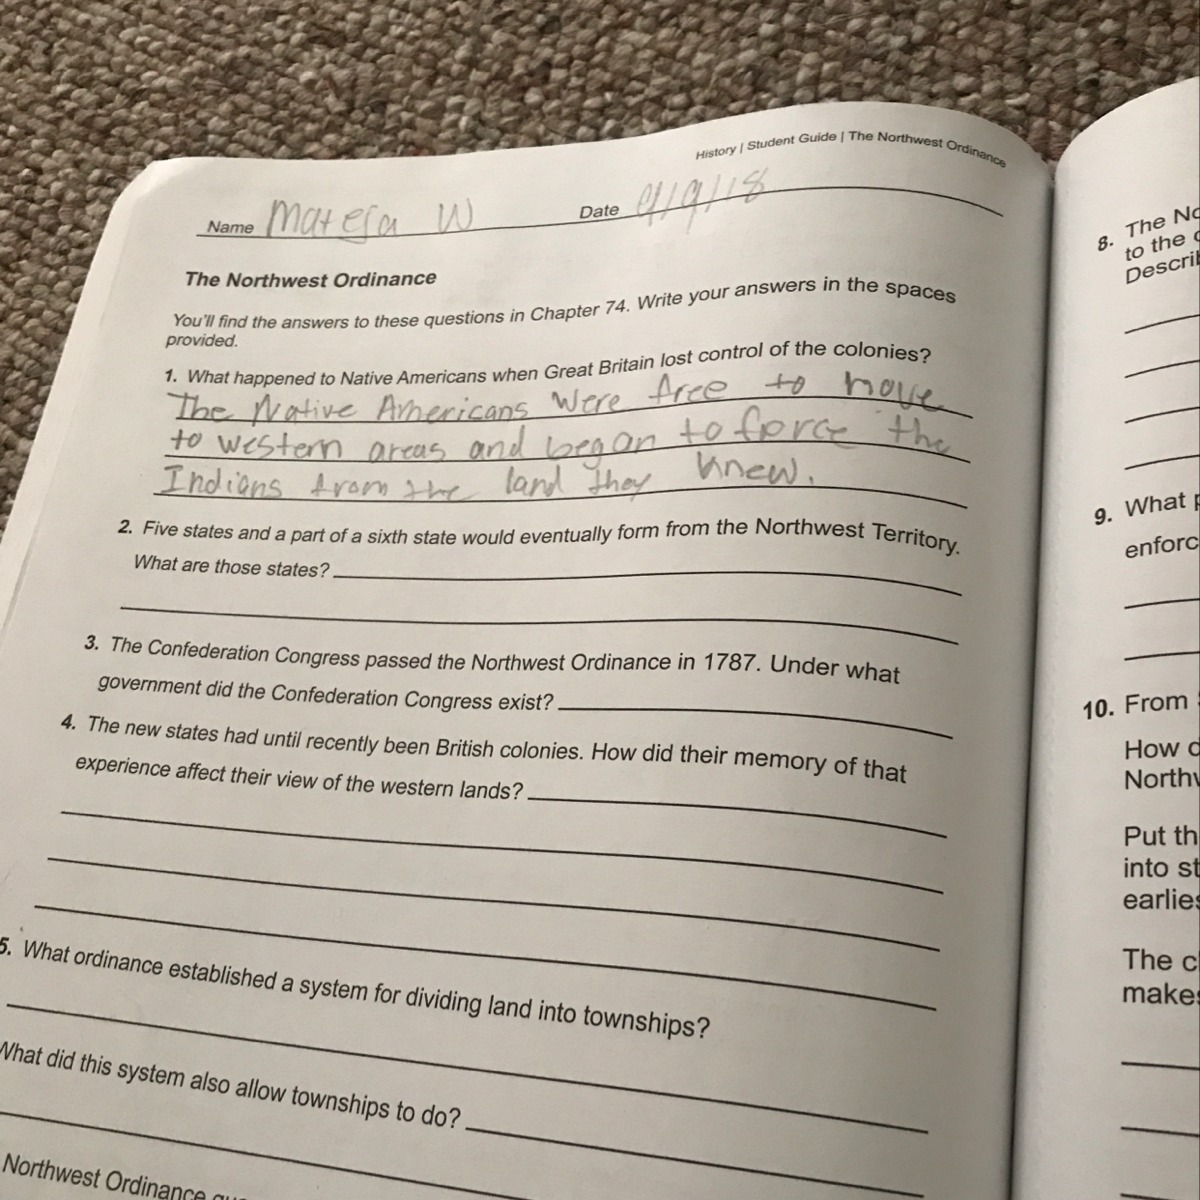 History | Student Guide | The Northwest Ordinance
Name Mateja W Date 9/9/18
The Northwest Ordinance
You'll find the answers to these questions in Chapter 74. Write your answers in the spaces
provided.
1. What happened to Native Americans when Great Britain lost control of the colonies?
The Native Americans were free to move
to western areas and began to force the
Indians from the land they knew.
2. Five states and a part of a sixth state would eventually form from the Northwest Territory.
What are those states?
3. The Confederation Congress passed the Northwest Ordinance in 1787. Under what
government did the Confederation Congress exist?
4. The new states had until recently been British colonies. How did their memory of that
experience affect their view of the western lands?
5. What ordinance established a system for dividing land into townships?
What did this system also allow townships to do?
Northwest Ordinance
8. The
to the
9. What
10. From
How
Put
into
The